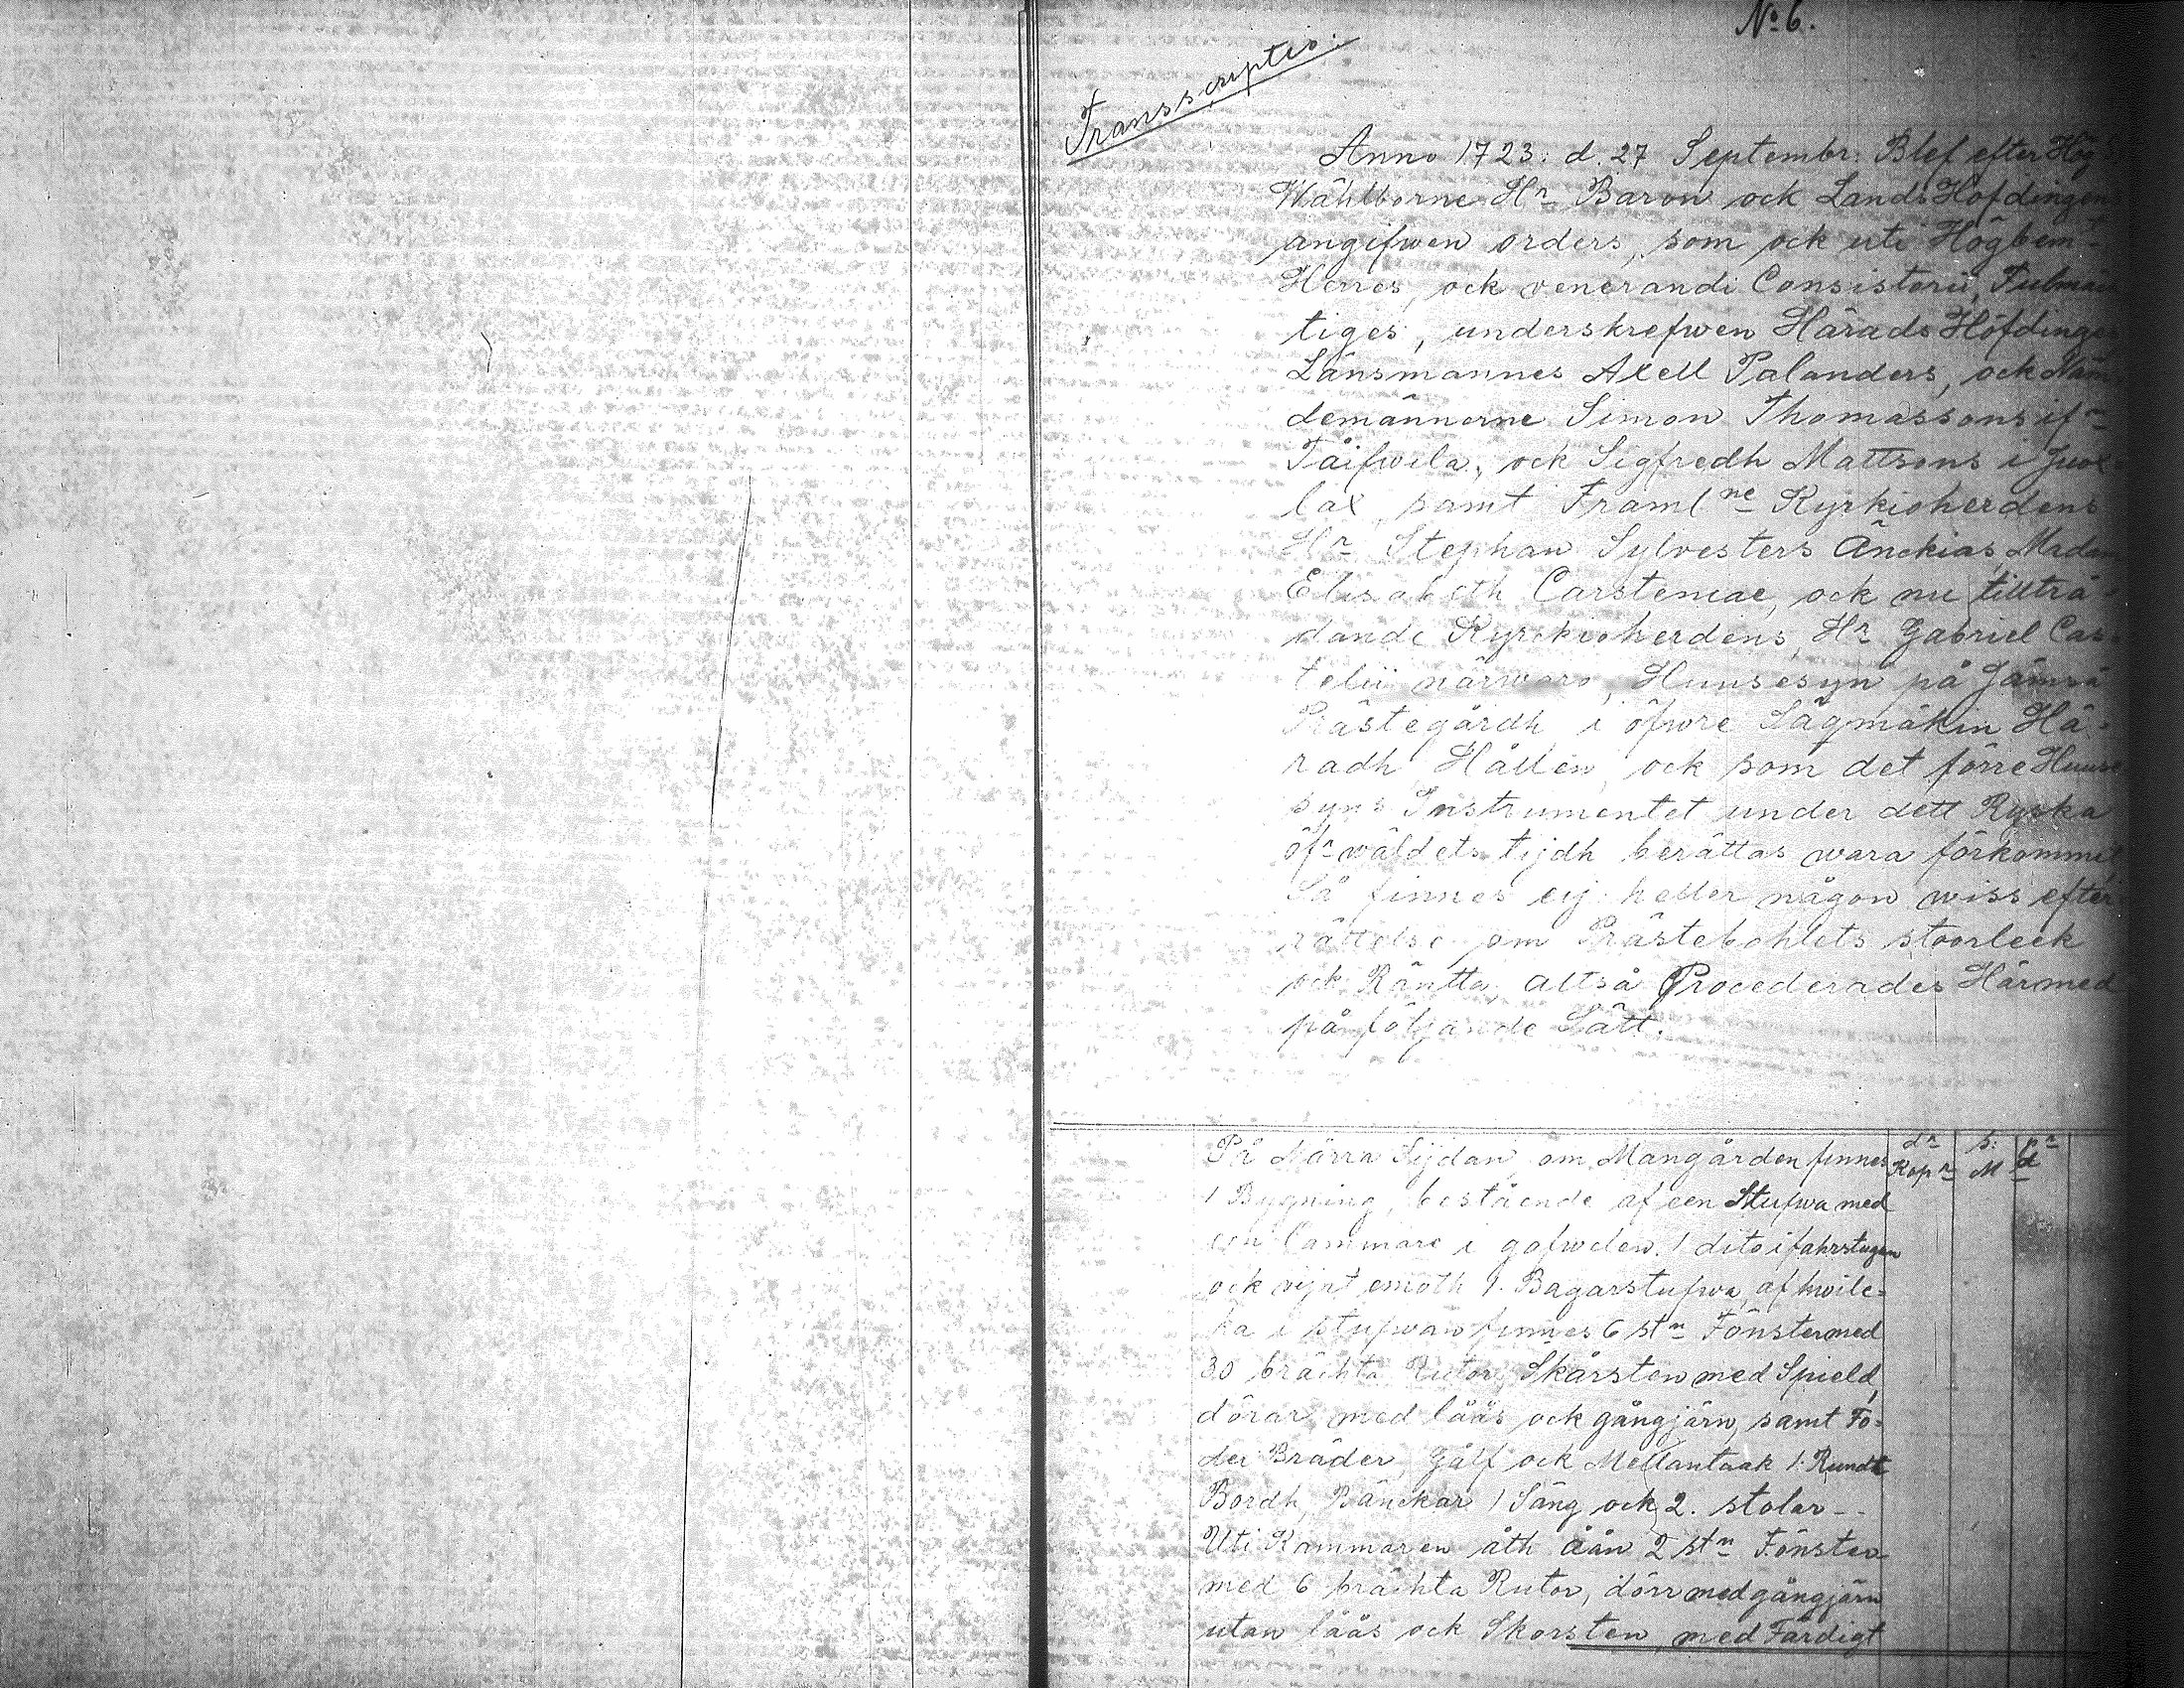 No 6.
Transscriptio.
Anno 1723. d. 27 Septembr. Blef efter Hög
Wählborne Hr Baron ock LandsHöfdingens
angifwen orders, som ock uti Högbemt
Herres, ock venerandi Consistorii, Fulmäck
tiges, underskrefwen HäradsHöfdinges
Länsmannes Axell Palanders, ock Näm
demännerne Simon Thomassons ifn
Påifwila, ock Sigfredh Mattsons i Juox
lax, samt Framl ne Kyrkioherdens
Hr Stephan Sylvesters Änckias, Madam
Elisabeth Carsteniae, ock nu tillträ-
dande Kyrckioherdens, Hr Gabriel Cas-
telii närwaro, Huusesyn på Jämsä
Prästegårdh i öfwre Sägmäkin Hä-
radh Hållen, ock som det förre Huuse
syns Instrumentet under dett Ryska
öfrwäldets tijdh berättas wara förkommit
Så finnes eij heller någon wiss efter
rättelse om Prästebohlets stoorleek
ock Räntta, altså Procederades Härmed
på följande Sätt.
På Norra Sijdan om Mangården finnes
dr Kopr
s: M
pr ct
1 Bygning, bestående af een Stufwa med
een Cammare i gafwelen. 1 dito i fahrstugan
ock vijst emoth 1. Bagarstufwa, af hwilc-
ka i stufwan finnes 6 stn Fönster med
30 bräckta Rutor, Skårsten med Spield,
dörar med låås ock gångjärn, samt Fo-
der Bräder, Gålf ock Mellantaak 1. Rundt
Bordh, Bänckar 1 Säng ock 2. stolar--
Uti Kammaren åth åån 2 stn Fönster
med 6 bräckta Rutor, dörr med gångjärn
utan låås ock Skorsten med Färdigt